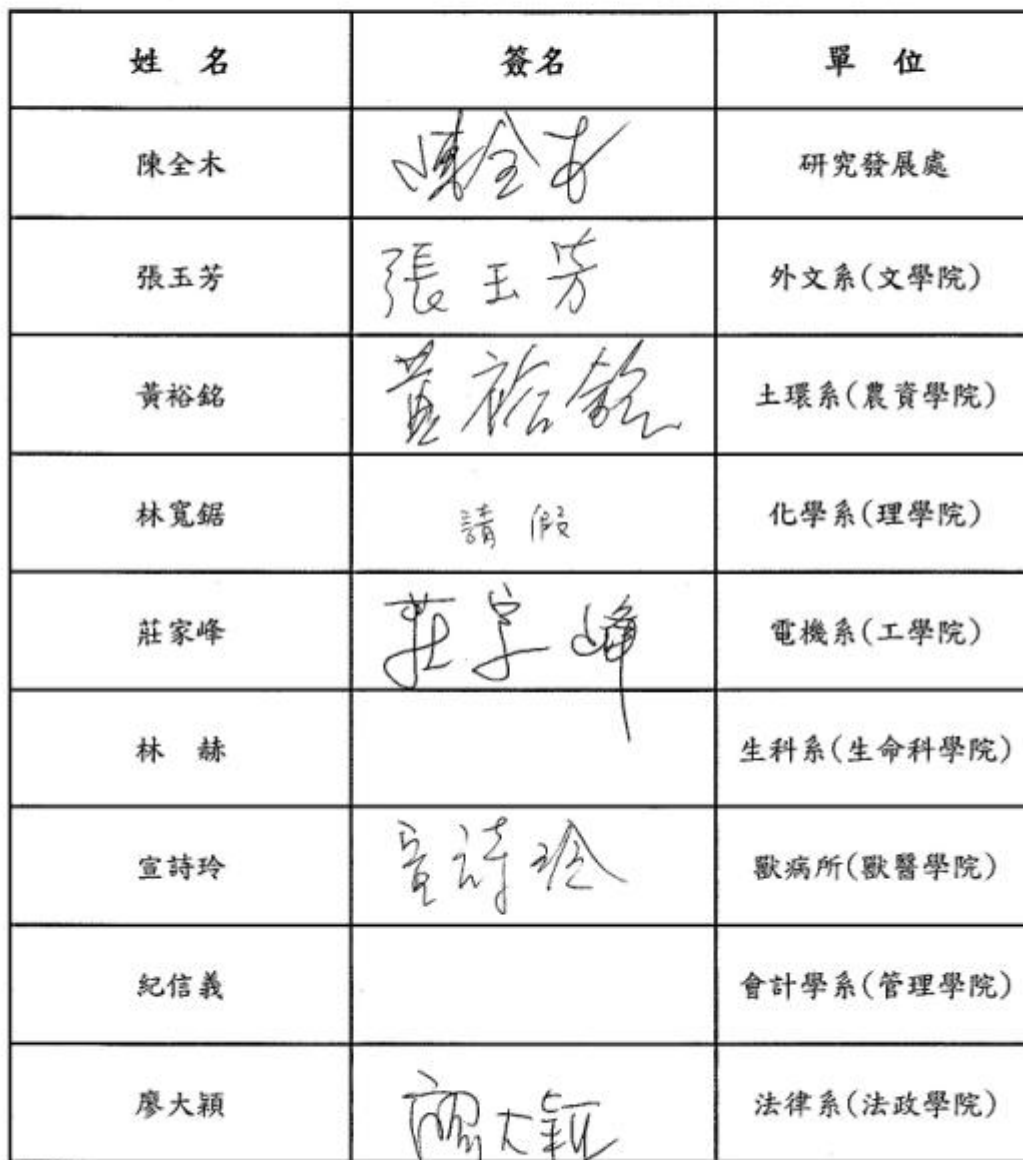 姓 名 簽名 單 位
陳全木 陳全木 研究發展處
張玉芳 張玉芳 外文系(文學院)
黃裕銘 黃裕銘 土環系(農資學院)
林寬鋸 請假 化學系(理學院)
莊家峰 莊家峰 電機系(工學院)
林 赫 生科系(生命科學院)
宣詩玲 宣詩玲 獸病所(獸醫學院)
紀信義 會計學系(管理學院)
廖大穎 廖大穎 法律系(法政學院)